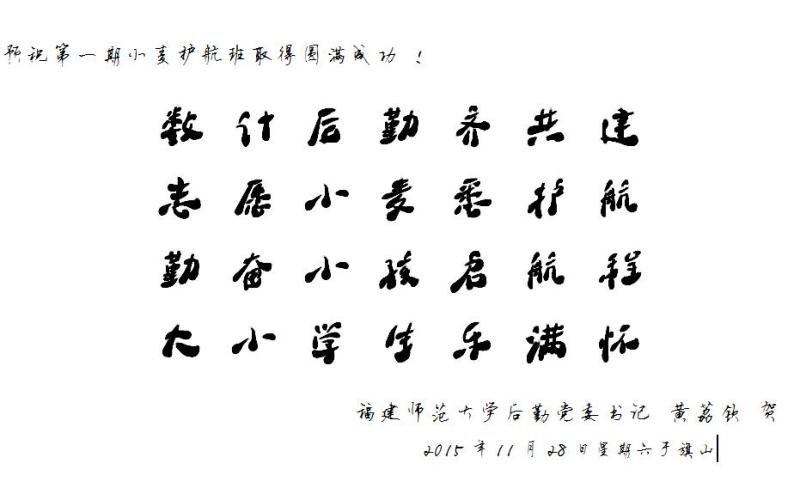 预祝第一期小麦护航班取得圆满成功！
数计后勤齐共建
志愿小麦悉护航
勤奋小孩启航程
大小学生乐满怀
福建师范大学后勤党委书记 黄荔钦 贺
2015年11月28日星期六于旗山